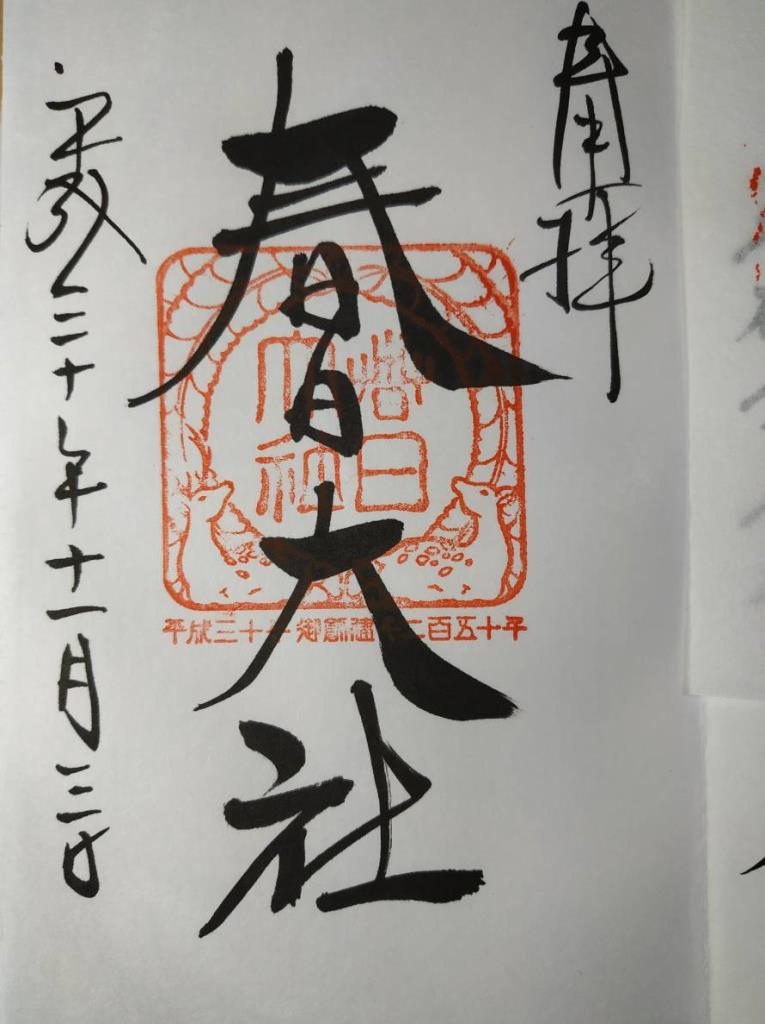 奉拝
春日大社
春日
大社
平成三十年 御創建千二百五十年
平成三十年十一月三日